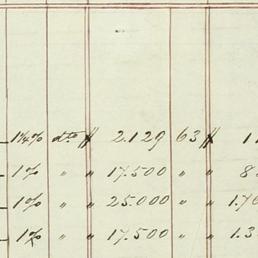 1¼% dto ƒ 2.129 63 ƒ 1
1% " " 17.500 " " 8
1% " " 25.000 " " 1.70
1% " " 17.500 " " 1.3